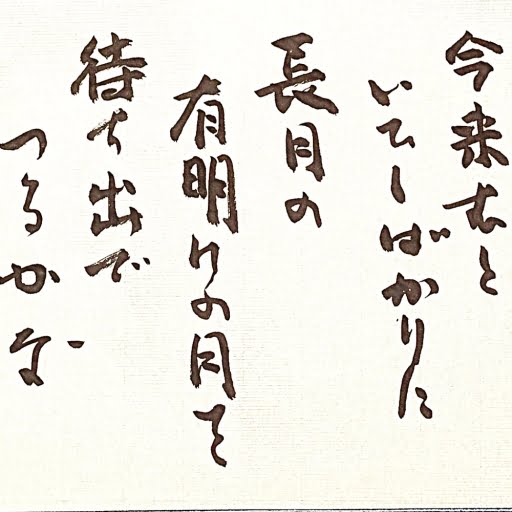 今来むと
いひしばかりに
長月の
有明けの月を
待ち出で
つるかな